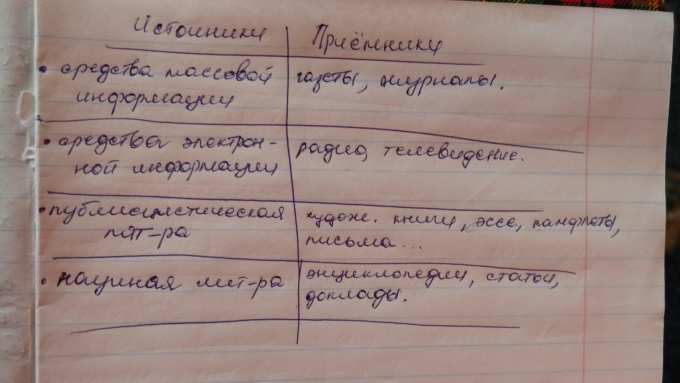 Источники
Приёмники
• средства массовой
информации
газеты, журналы.
• средства электрон-
ной информации
радио, телевидение.
• публицистическая
лит-ра
худож. книги, эссе, памфлеты,
письма...
• научная лит-ра
энциклопедии, статьи,
доклады.